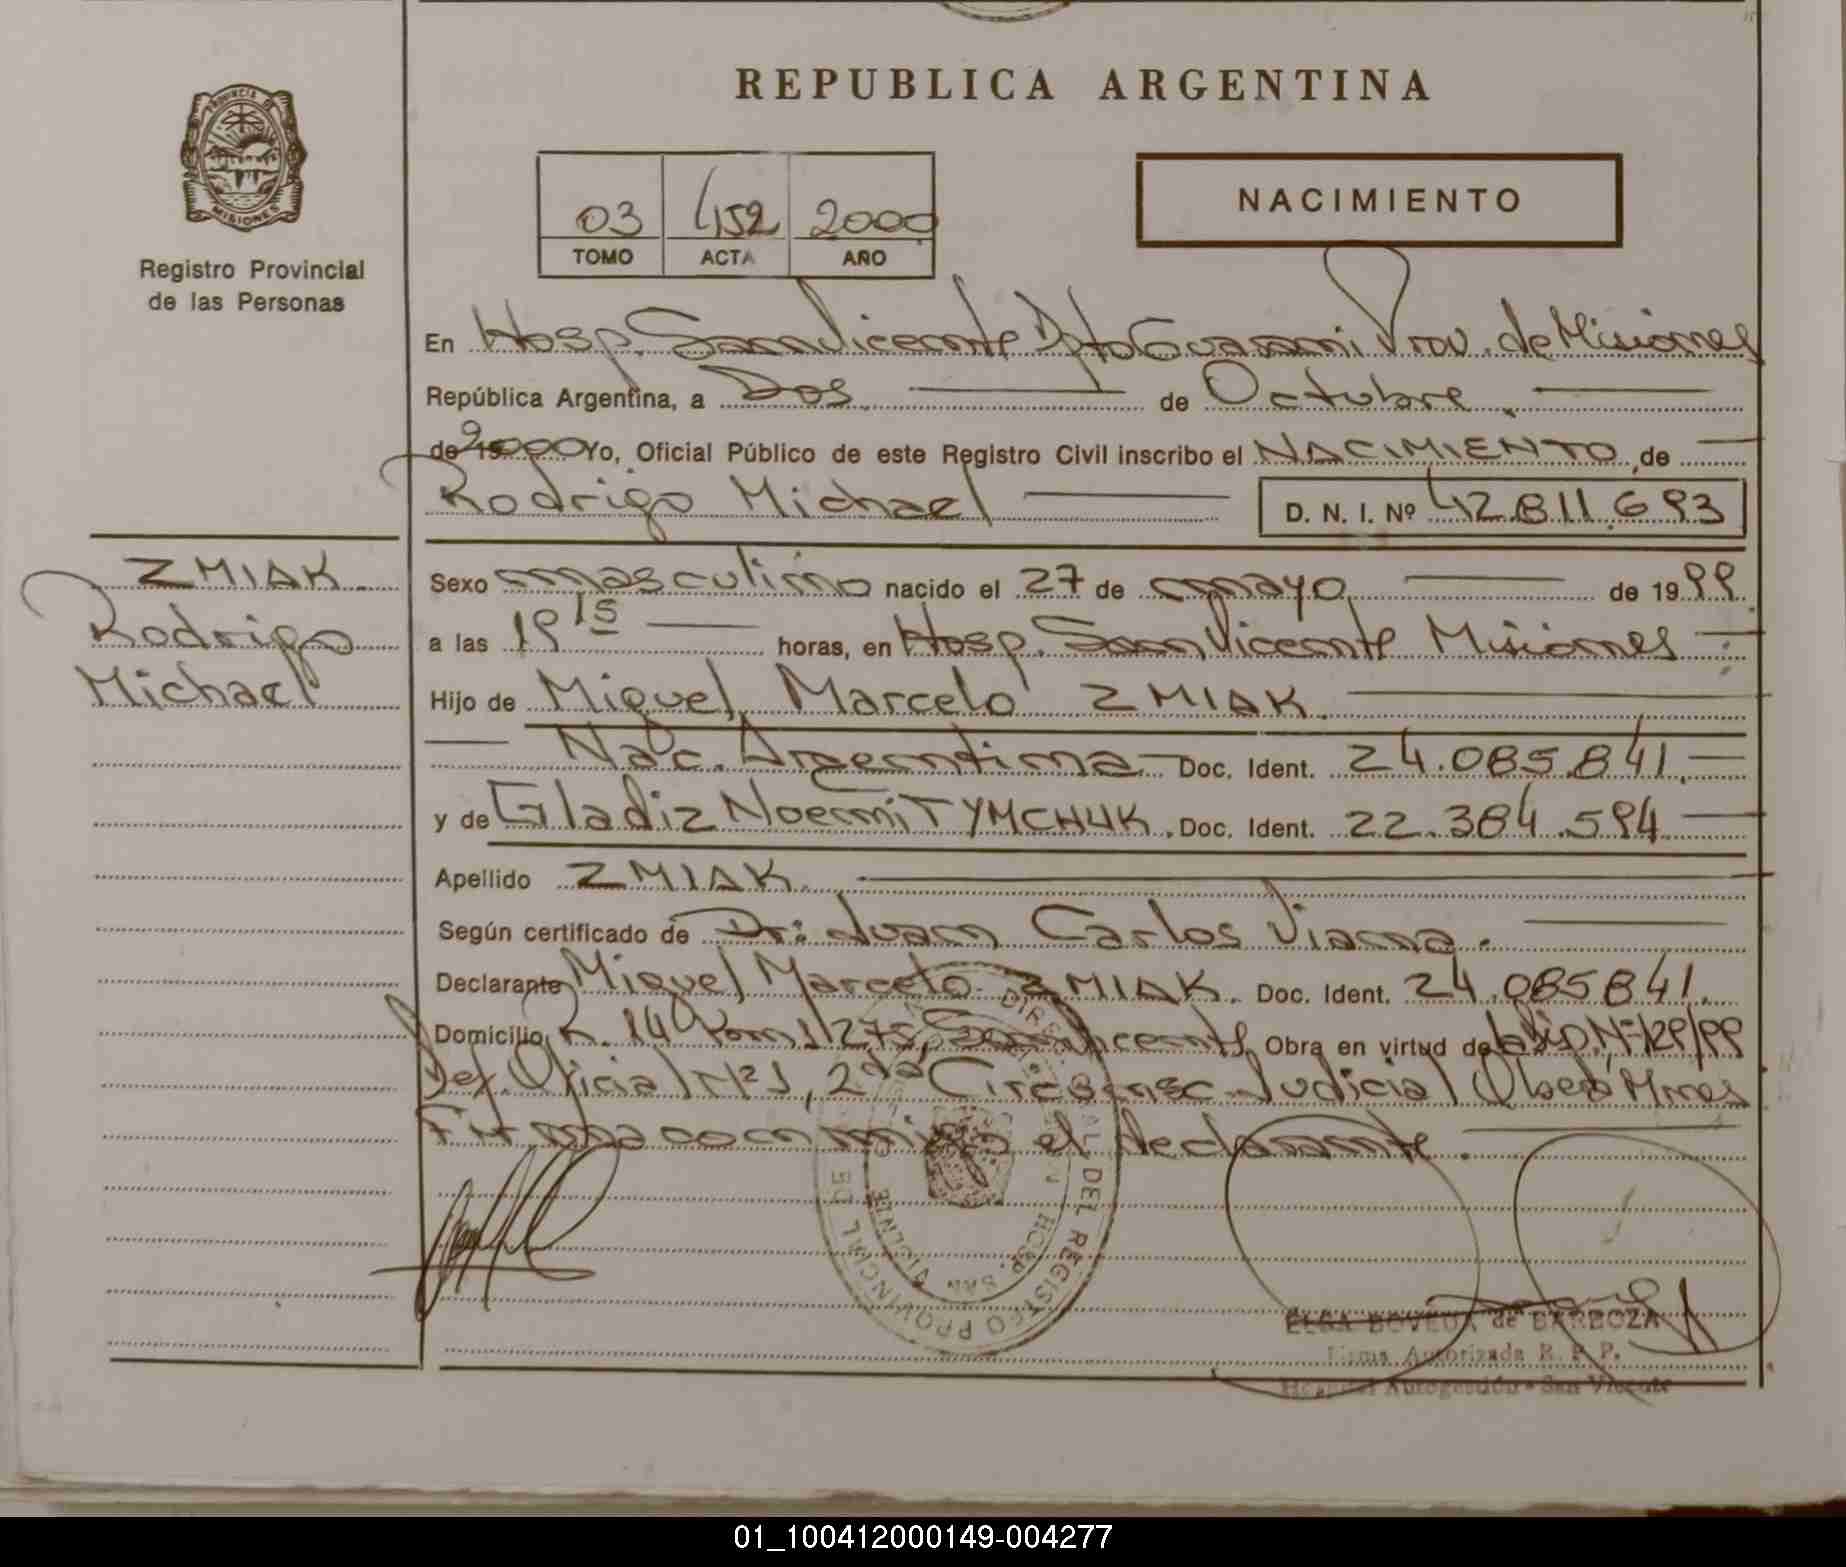 REPUBLICA ARGENTINA
PROVINCIA DE
MISIONES
Registro Provincial
de las Personas
03 452 2000
TOMO ACTA AÑO
NACIMIENTO
En Hosp. San Vicente Dpto Guarani Prov. de Misiones
República Argentina, a Dos de Octubre
de 2000 Yo, Oficial Público de este Registro Civil inscribo el NACIMIENTO de
Rodrigo Michael D. N. I. Nº 42.811.693
ZMIAK
Rodrigo
Michael
Sexo masculino nacido el 27 de mayo de 1999
a las 19 15 horas, en Hosp. San Vicente Misiones
Hijo de Miguel Marcelo ZMIAK
Nac. Argentina Doc. Ident. 24.085.841
y de Gladiz Noemi TYMCHUK. Doc. Ident. 22.384.594
Apellido ZMIAK.
Según certificado de Dr: Juan Carlos Viana.
Declarante Miguel Marcelo ZMIAK. Doc. Ident. 24.085841.
Domicilio R. 14 Km 1275, San Vicente Obra en virtud de Nº129/99
Def. Oficial Nº1, 2da Circunsc. Judicial Obera Mnes
Firma conmigo el declarante.
DEL REGISTRO PROVINCIAL DE
HOSP. SAN VICENTE
ELSA BOVEDA de BARBOZA
Firma Autorizada R. P. P.
Hospital Autogestión - San Vicente
01_100412000149-004277